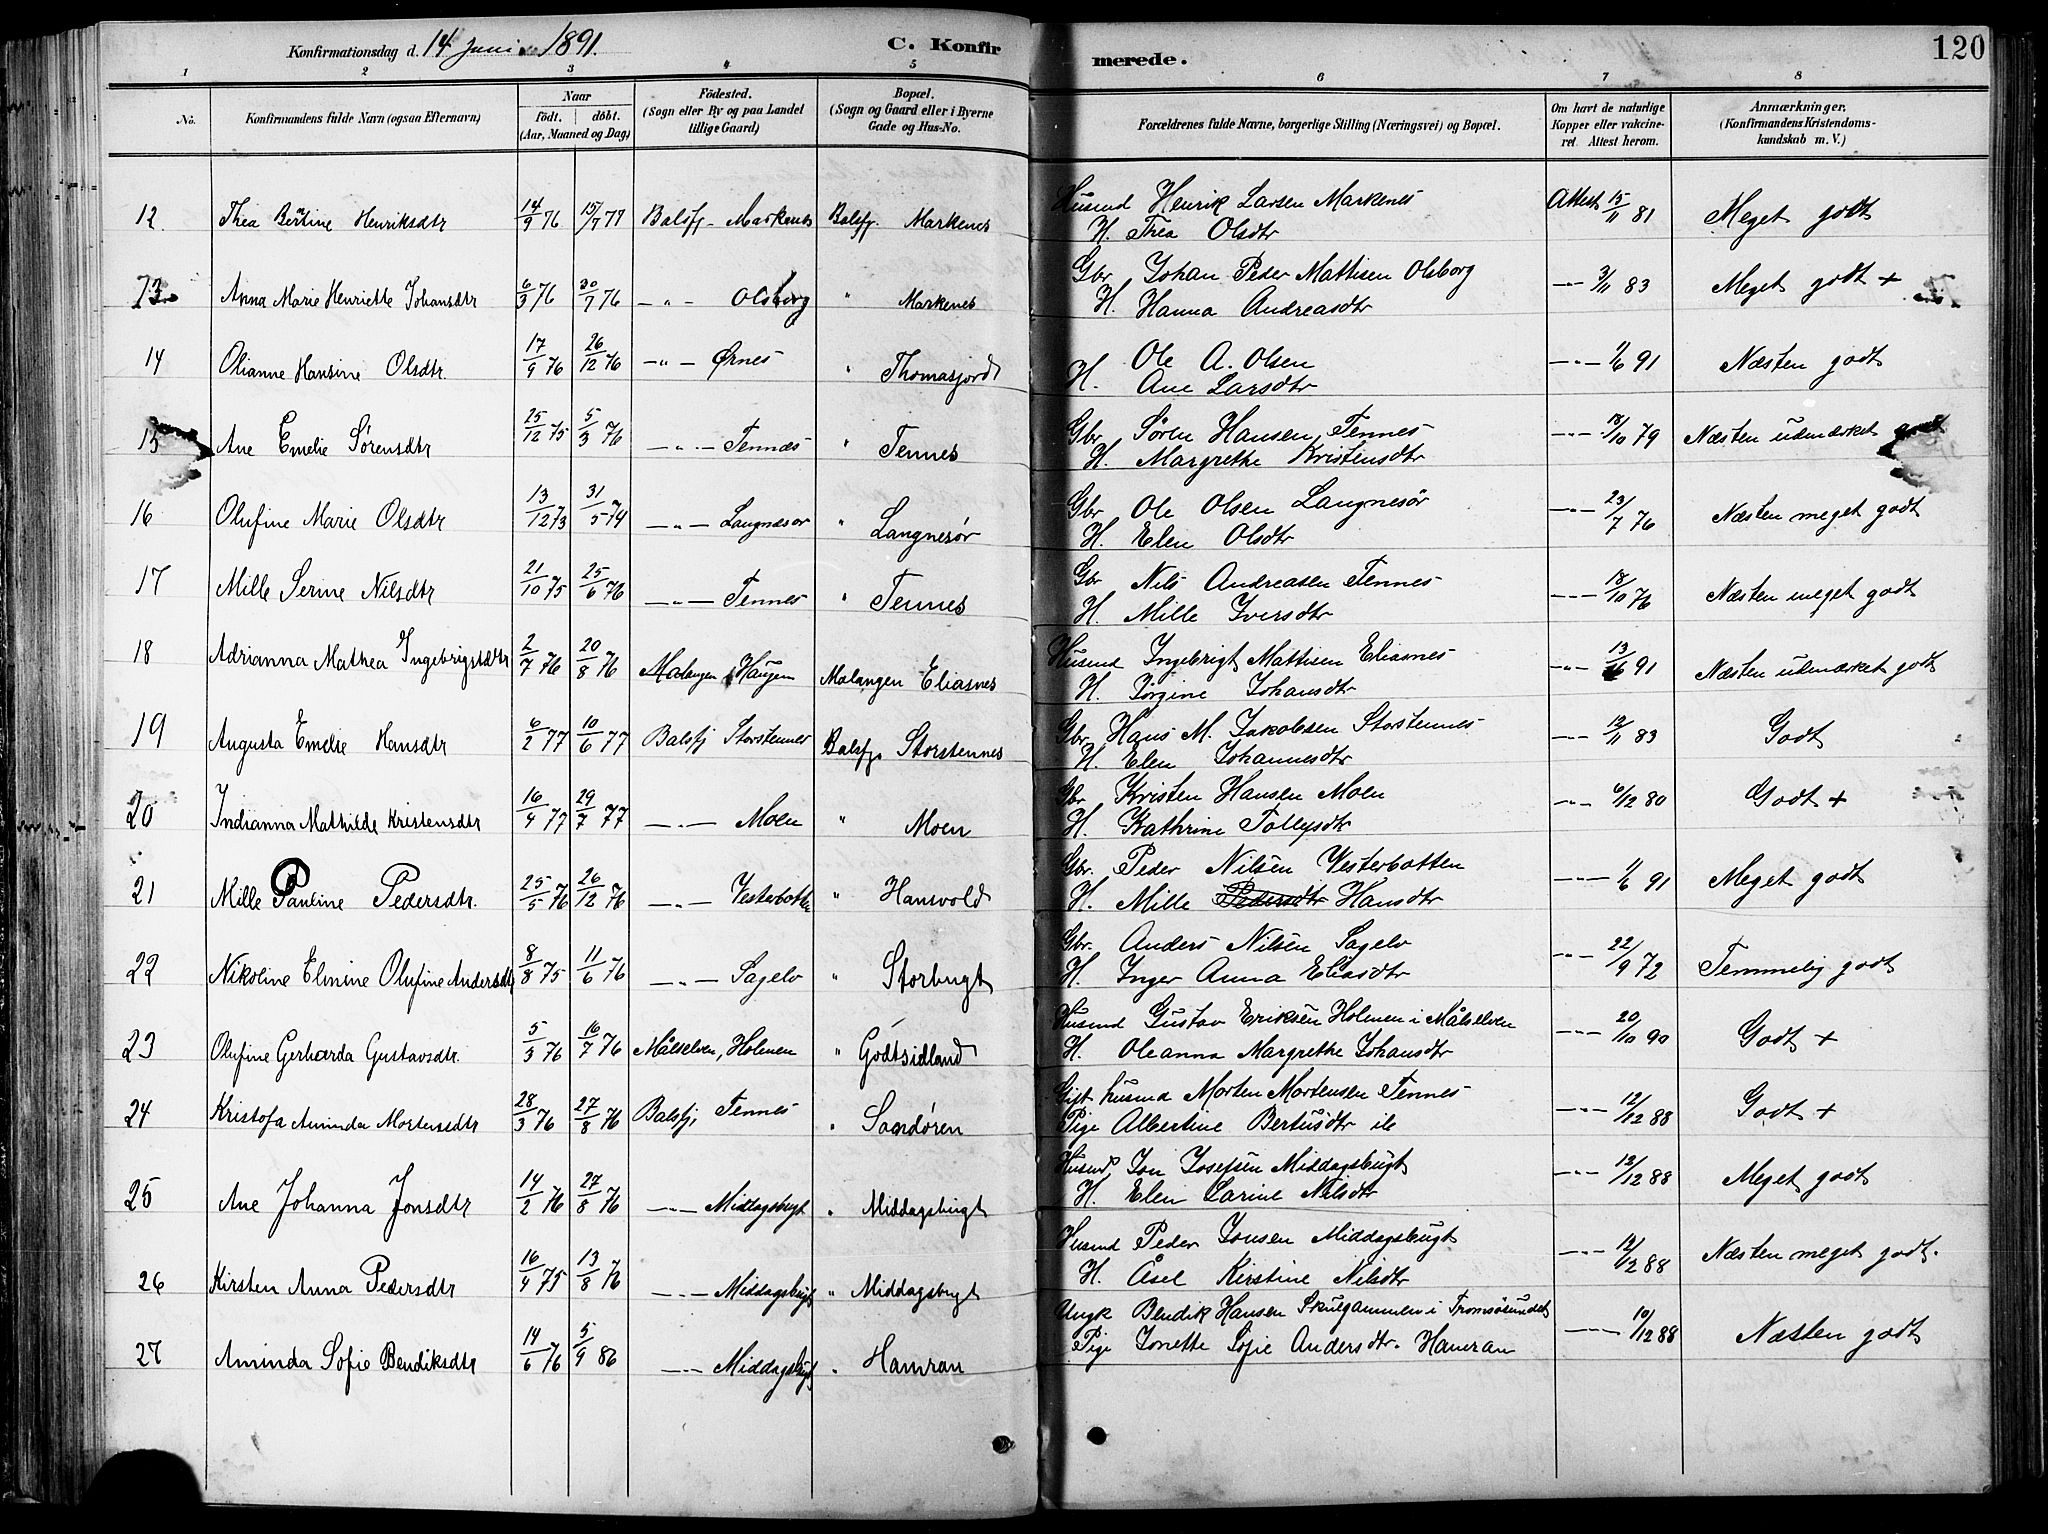 Konfirmationsdag d. 14 Juni 1891. C. Konfirmerede. 120
1 2 3 4 5 6 7 8
No. Konfirmandens fulde Navn (ogsaa Efternavn) Naar født. døbt. (Aar, Maaned og Dag) Fødested. (Sogn eller By og paa Landet tillige Gaard) Bopæl. (Sogn og Gaard eller i Byerne Gade og Hus-No. Forældrenes fulde Navne, borgerlige Stilling (Næringsvei) og Bopæl. Om havt de naturlige Kopper eller vakcineret. Attest herom. Anmærkninger, (Konfirmandens Kristendomskundskab m. V.)
12 Thea Berntine Henriksdtr 14/9 76 15/7 77 Balsfj - Markenes Balsfj. Markenes Husmd Henrik Larsen Markenes Attest 15/11 81 Meget godt
H. Thea Olsdtr
13 Anna Marie Henriette Johansdtr 6/3 76 30/7 76 — " — Olsborg " Markenes Gbr Johan Peder Mattisen Olsborg — " — 3/11 83 Meget godt +
H. Hanna Andreasdtr
14 Olianne Hansine Olsdtr. 17/9 76 26/12 76 — " — Ørnes " Thomasjord Ole A. Olsen — " — 1/6 91 Næsten godt
H. Ane Larsdtr
15 Ane Emelie Sørensdtr 25/12 75 5/3 76 — " — Tennes " Tennes Gbr Søren Hansen Tennes — " — 18/10 79 Næsten udmærket godt
H. Margrethe Kristensdtr
16 Olufine Marie Olsdtr 13/12 73 31/5 74 — " — Langnesør " Langnesør Gbr Ole Olsen Langnesør — " — 23/7 76 Næsten meget godt
H. Elen Olsdtr
17 Mille Serine Nilsdtr 21/10 75 25/6 76 — " — Tennes " Tennes Gbr Nils Andreasen Tennes — " — 18/10 76 Næsten meget godt
H. Mille Iversdtr
18 Adrianna Mathea Ingebrigtsdtr 2/7 76 20/8 76 Malangen Haugen Malangen Eliasnes Husmd Ingebrigt Mattisen Eliasnes — " — 13/6 91 Næsten udmærket godt
H. Jørgine Johansdtr
19 Augusta Emelie Hansdtr 6/2 77 10/6 77 Balsfj Storstennes Balsfj. Storstennes Gbr Hans M. Jakobsen Storstennes — " — 12/11 83 Godt
H. Elen Johannesdtr
20 Indianna Mathilde Kristensdtr 16/4 77 29/7 77 — " — Moen " Moen Gbr Kristen Hansen Moen — " — 6/12 80 Godt +
H. Kathrine Tollefsdtr
21 Mille Pauline Pedersdtr. 25/5 76 26/12 76 — " — Vesterbotten " Hansvold Gbr. Peder Nilsen Vesterbotten — " — 1/6 91 Meget godt
H. Mille Pedersdtr Hansdtr
22 Nikoline Elmine Olufine Andersdtr 8/8 75 11/6 76 — " — Sagelv " Storbugt Gbr. Anders Nilsen Sagelv — " — 22/9 72 Temmelig godt
H. Inger Anna Eliasdtr
23 Olufine Gerharda Gustavsdtr. 5/3 76 16/7 76 Målselven, Holmen " Godtsidland Husmd Gustav Eriksen Holmen i Målselven — " — 20/10 90 Godt +
H. Oleanna Margrethe Johansdtr
24 Kristofa Aminda Mortensdtr 28/3 76 27/8 76 Balsfj, Tennes " Sandøren Gift husmd Morten Mortensen Tennes — " — 12/12 88 Godt +
Pige Albertine Bertusdtr ib
25 Ane Johanna Jonsdtr 14/2 76 27/8 76 — " — Middagsbugt " Middagsbugt Husmd Jon Josefsen Middagsbugt — " — 12/12 88 Meget godt
H. Elen Sarine Nilsdtr
26 Kirsten Anna Pedersdtr 16/4 75 13/8 76 — " — Middagsbugt " Middagsbugt Husmd Peder Jonsen Middagsbugt — " — 12/12 88 Næsten meget godt.
H. Åsel Kirstine Nilsdtr
27 Aminda Sofie Bendiksdtr 14/6 76 5/9 86 — " — Middagsbugt " Hamran Ungk Bendik Hansen Skulgammen i Tromsøsundet — " — 10/12 88 Næsten godt
Pige Jonette Sofie Andersdtr. Hamran